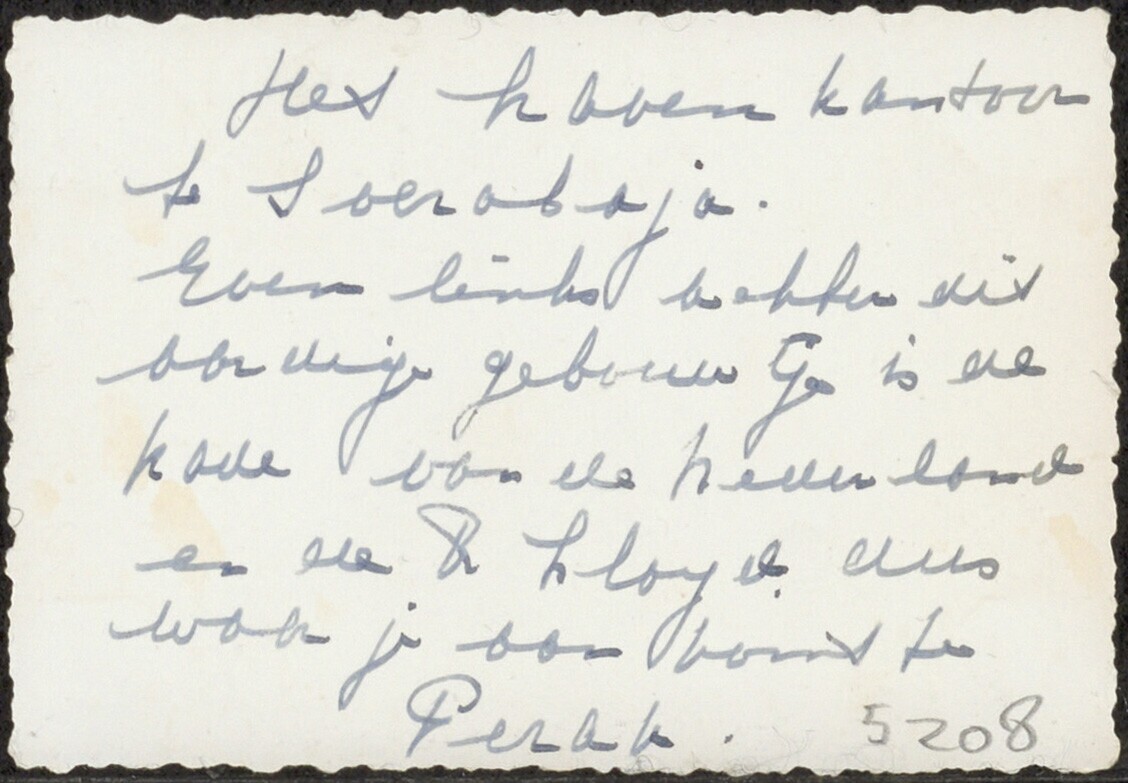 Het haven kantoor
te Soerabaja.
Even links achter dit
aardige gebouwtje is de
kade van de Nederland
en de R Lloyd. dus
waar je aan komt te
Perak. 5208